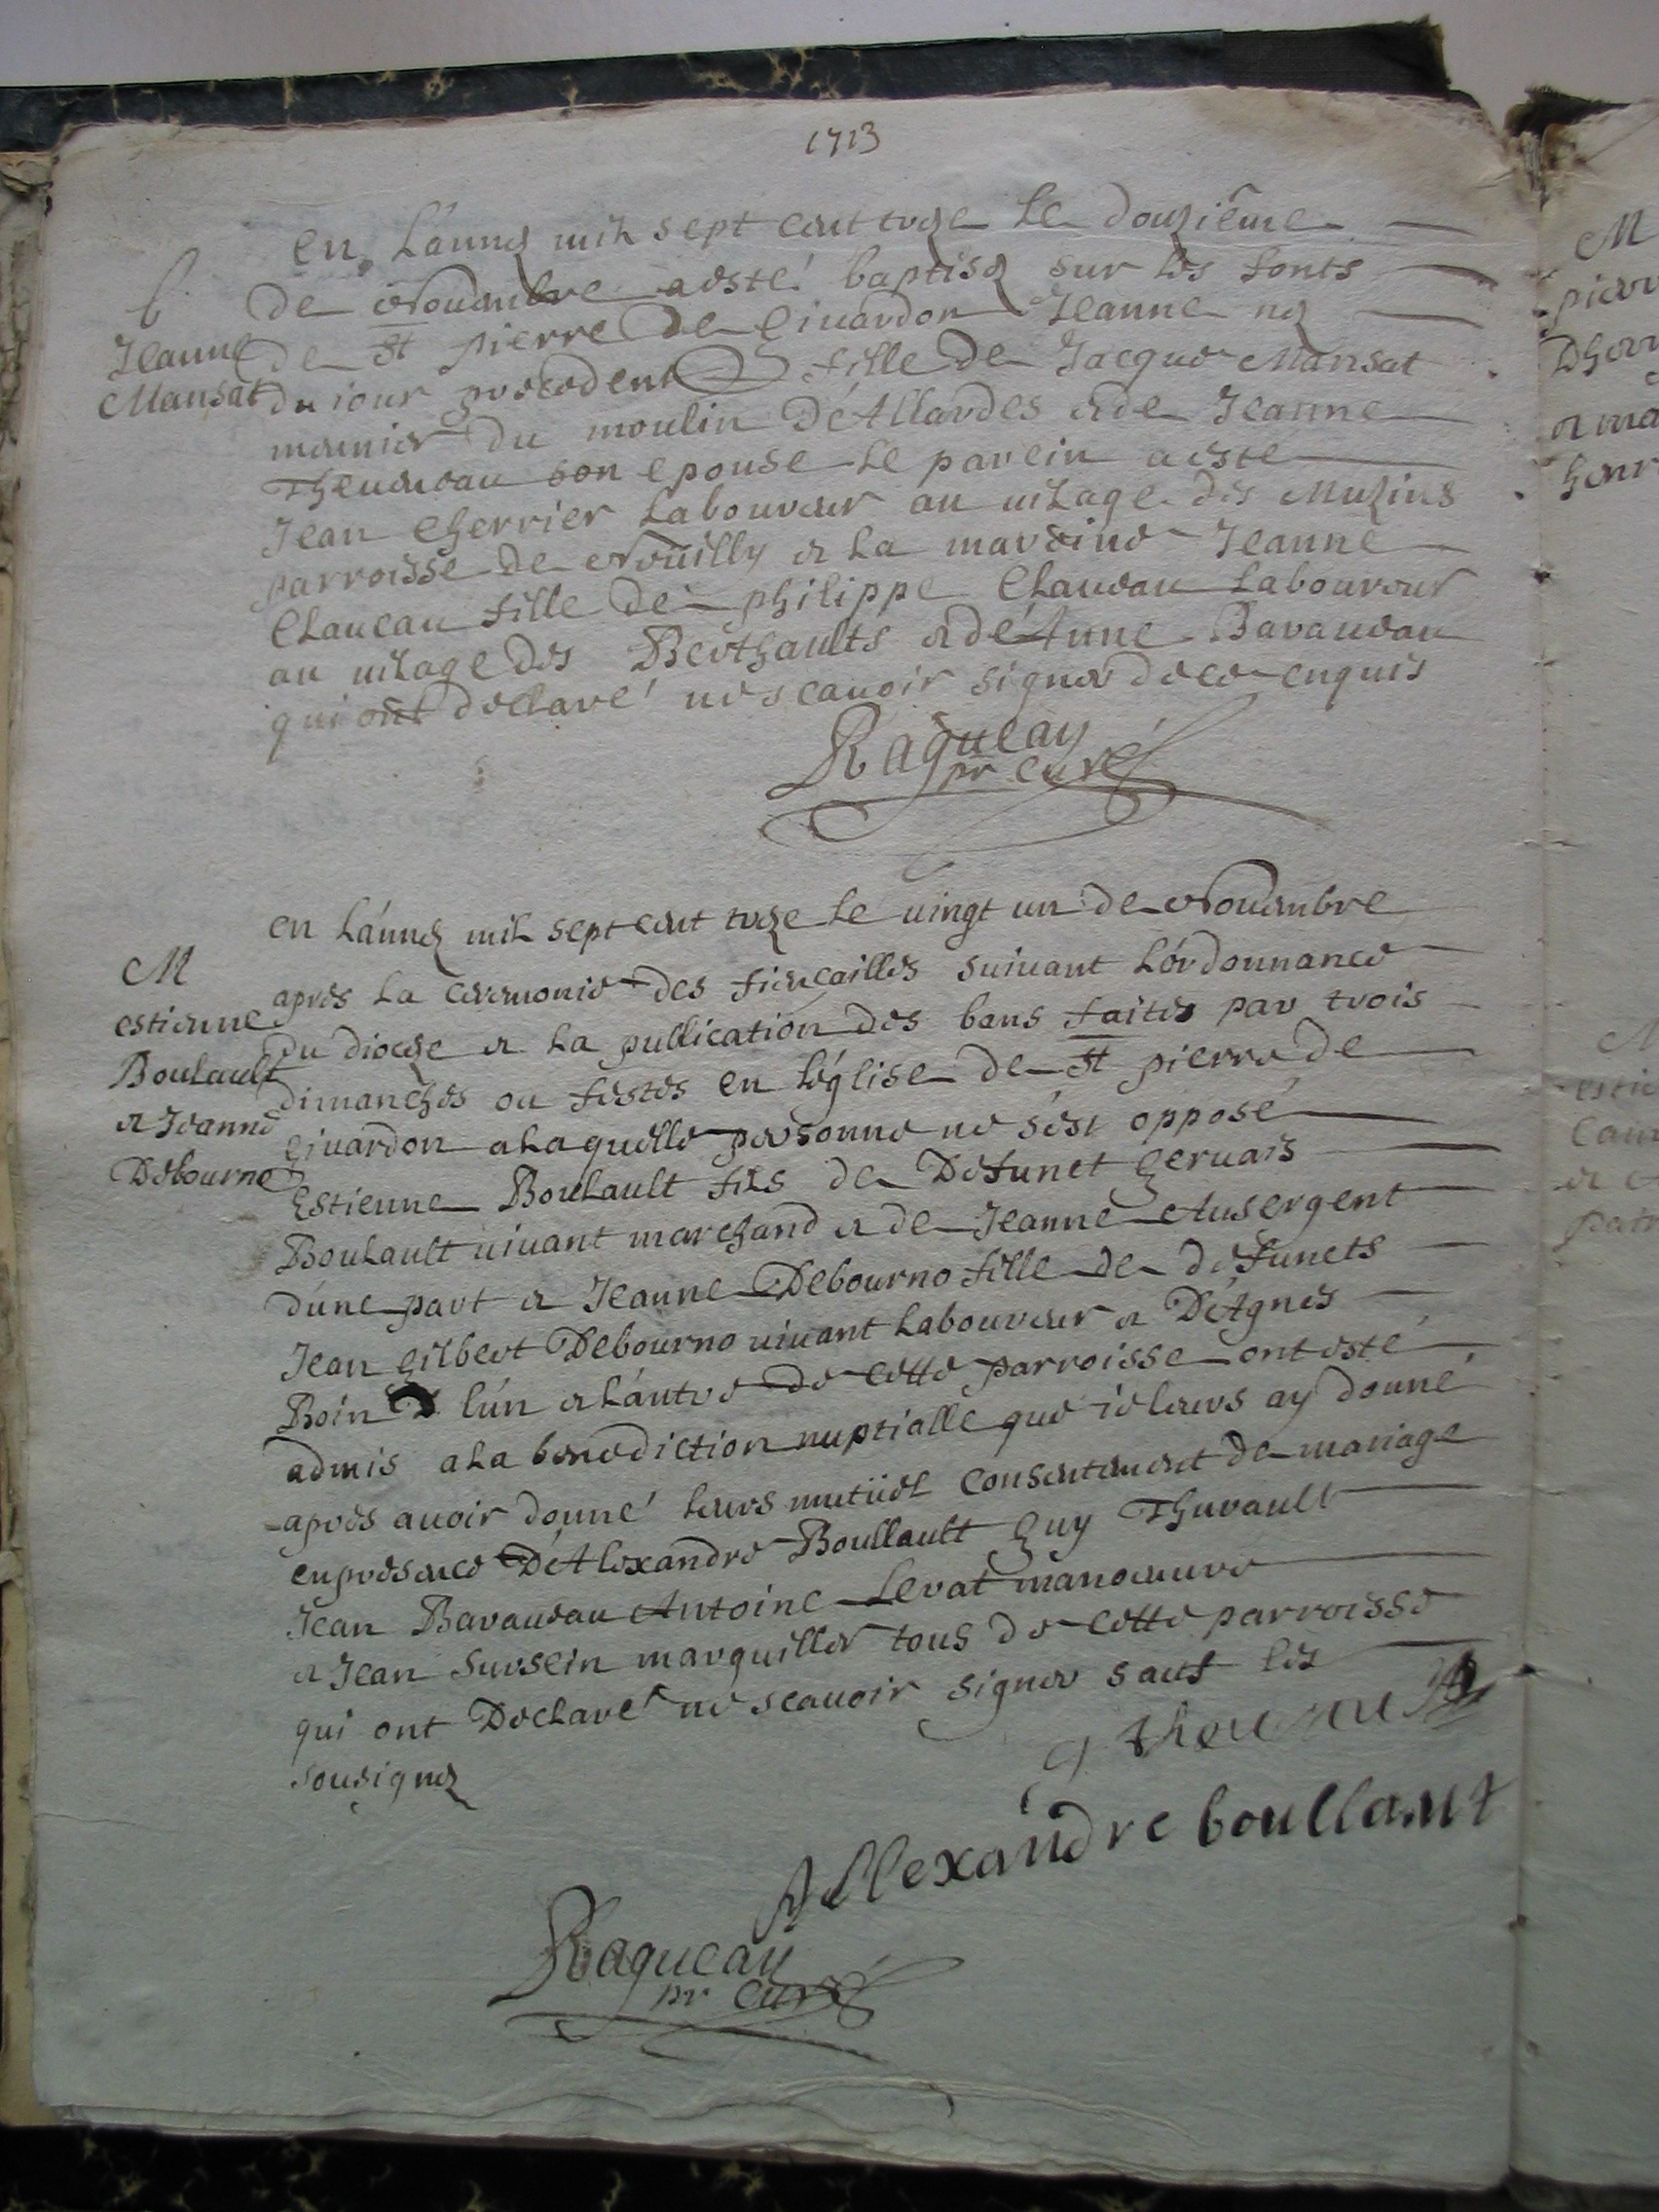 1713
b
Jeanne
Mansat
en l'année mil sept cent treze le douziême
de Nouembre a esté baptisé sur les fonts
de St pierre de Giuardon Jeanne née
du iour precedent fille de Jacque Mansat
meunier du moulin d'Allardes et de Jeanne
Theueneau son epouse le parein a esté
Jean Cherrier Laboureur au uilage des Muzins
parroisse de Nouilly et la mareine Jeanne
Claueau fille de philippe Claueau Laboureur
au uilage des Berthaults et de Anne Bavaudeau
qui ont declaré ne scauoir signer de ce enquis
Ragueau
pr curé
M
estienne
Boulault
et Jeanne
Debourne
en l'année mil sept cent treze le uingt un de Nouembre
apres la ceremonie des fiençailles suiuant l'órdonnance
du diocèse et la publication des bans faites par trois
dimanches ou festes en l'église de St pierre de
Giuardon a laquelle personne ne s'est opposé
Estienne Boulault fils de Defunct Geruais
Boulault uiuant marchand et de Jeanne Ausergent
d'une part et Jeanne Debourno fille de defuncts
Jean Gilbert Debourno uiuant Laboureur et D'Agnes
Boin l'ún et l'áutre de cette parroisse ont esté
admis a la benediction nuptialle que ie leurs ay donné
apres auoir donné leurs mutüel consentement de mariage
en presence D'Alexandre Boullault Guy Thuvault
Jean Bavaudeau Antoine Levat manoeuure
et Jean Sursein marguiller tous de cette parroisse
qui ont Declaré ne scauoir signer sauf les
sousignez
Allexandre boullaut
Ragueau
pr curé